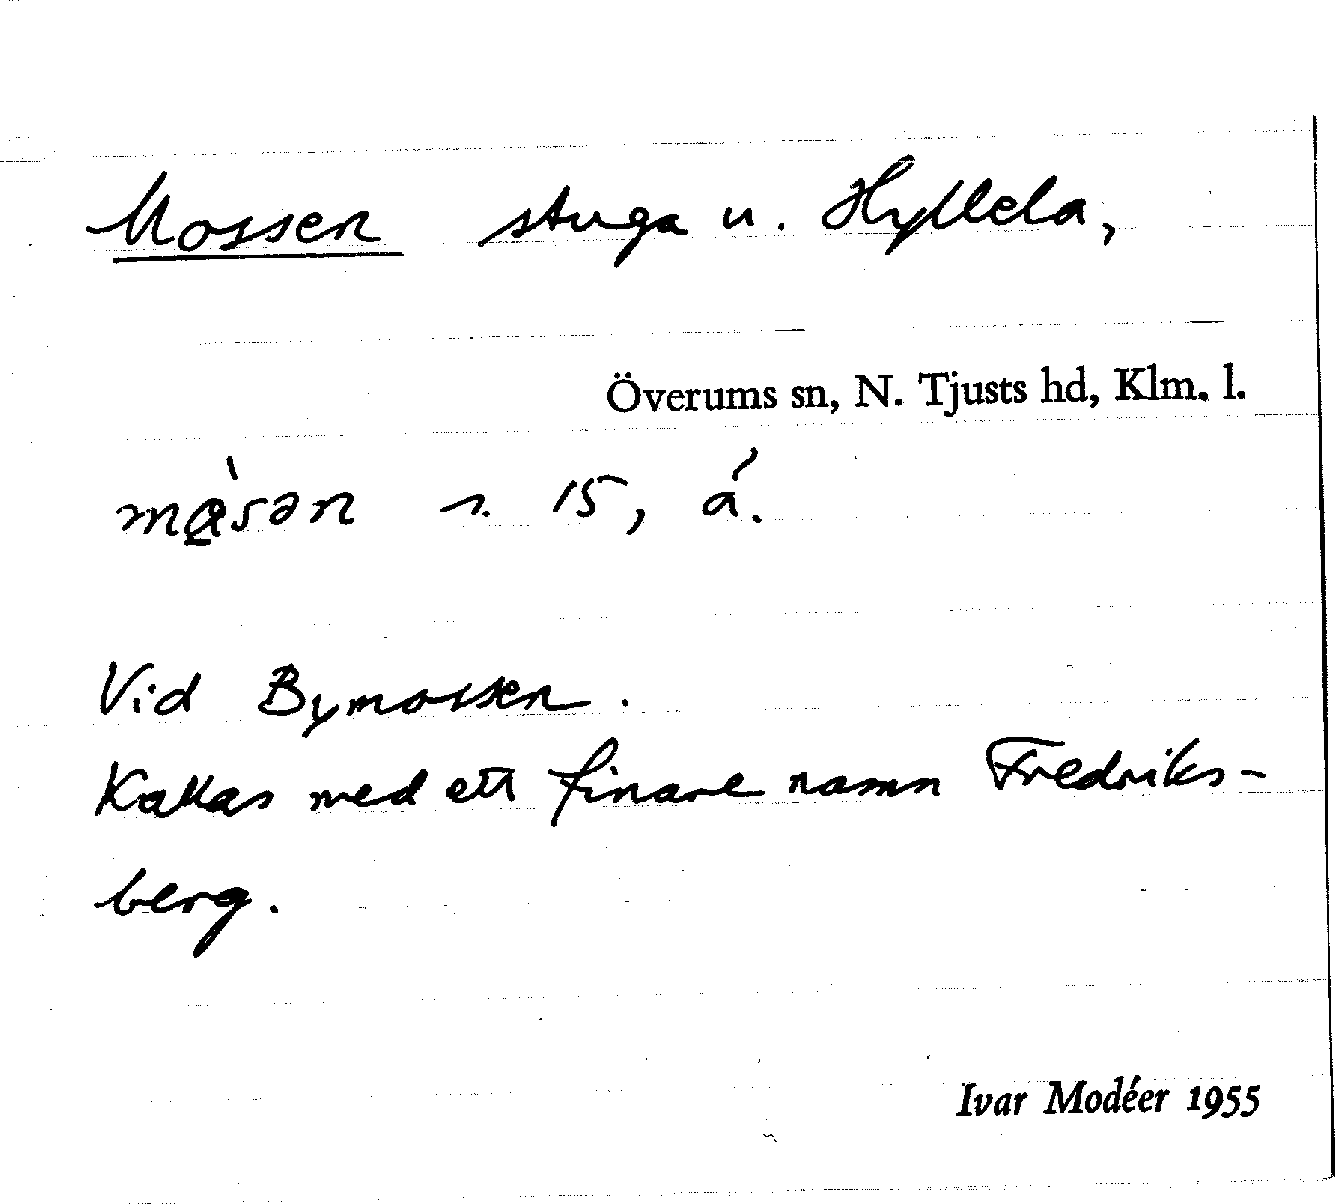 Mossen stuga u. Hyllela,
Överums sn, N. Tjusts hd, Klm. l.
15, á.
Vid Bymossen.
Kallas med ett finare namn Fredriks-
berg.
Ivar Modéer 1955